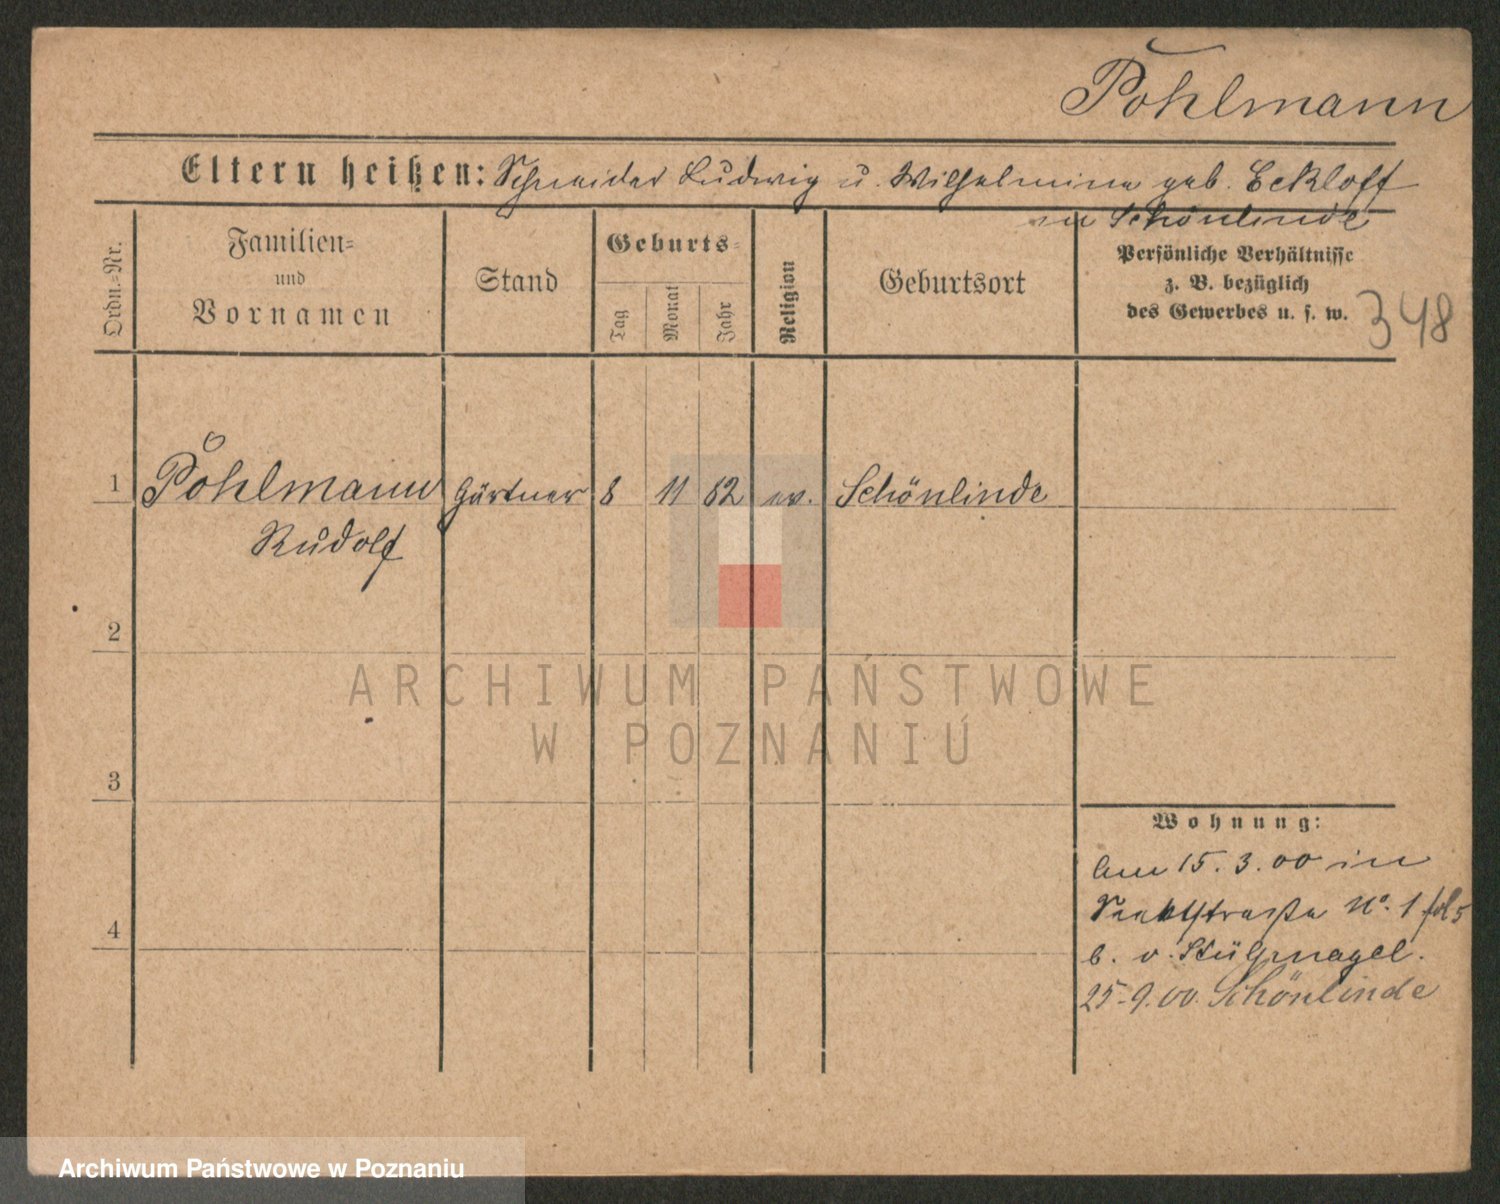 Pöhlmann
Eltern heißen: Schneider Ludwig u. Wilhelmine geb. Eckloff
in Schönlinde
Ordn.=Nr.
Familien=
und
Vornamen
Stand
Geburts=
Tag
Monat
Jahr
Religion
Geburtsort
Persönliche Verhältnisse
z. B. bezüglich
des Gewerbes u. s. w.
348
1 Pöhlmann Gärtner 8 11 82 ev. Schönlinde
Rudolf
2
ARCHIWUM PAŃSTWOWE
W POZNANIU
3
Wohnung:
15.3.00 in
No. 1 fol 5
b. v. Stülpnagel.
4
25.9.00. Schönlinde
Archiwum Państwowe w Poznaniu